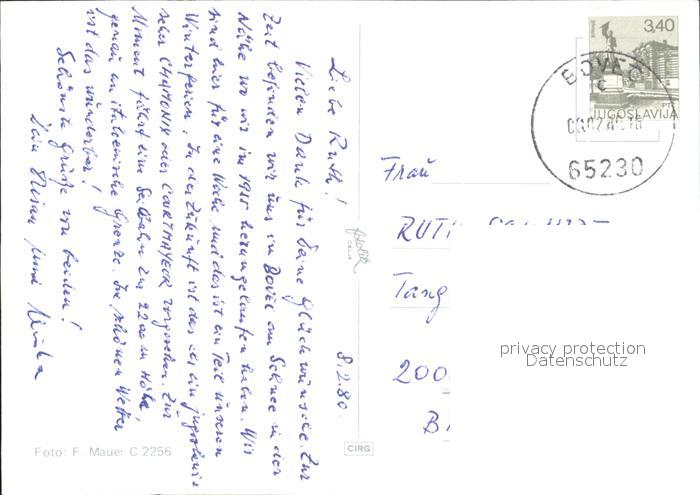 Liebe Ruth!
Vielen Dank für Deine Glückwünsche. Zur
Zeit befinden wir uns in Bovec am Schnee in der
Nähe wo wir im 1915 herumgelaufen haben. Wir
sind hier für eine Woche und das ist ein Teil unseren
Winterferien. In der Zukunft ist das als ein jugoslawi-
scher CHAMONIX oder COURTMAYEUR vorgesehen. Zur
Moment fährt eine Seilbahn zur 2200 m Höhe,
genau an italienische Grenze. In schönen Wetter
ist das wunderbar!
Schönste Grüße von beiden!
Dein und
8.2.80.
Foto: F. Mauer C 2256
CIRG
3,40
PTT
JUGOSLAVIJA
BOVEC
c
65230
Frau
RUTH
Tang
200
privacy protection
Datenschutz